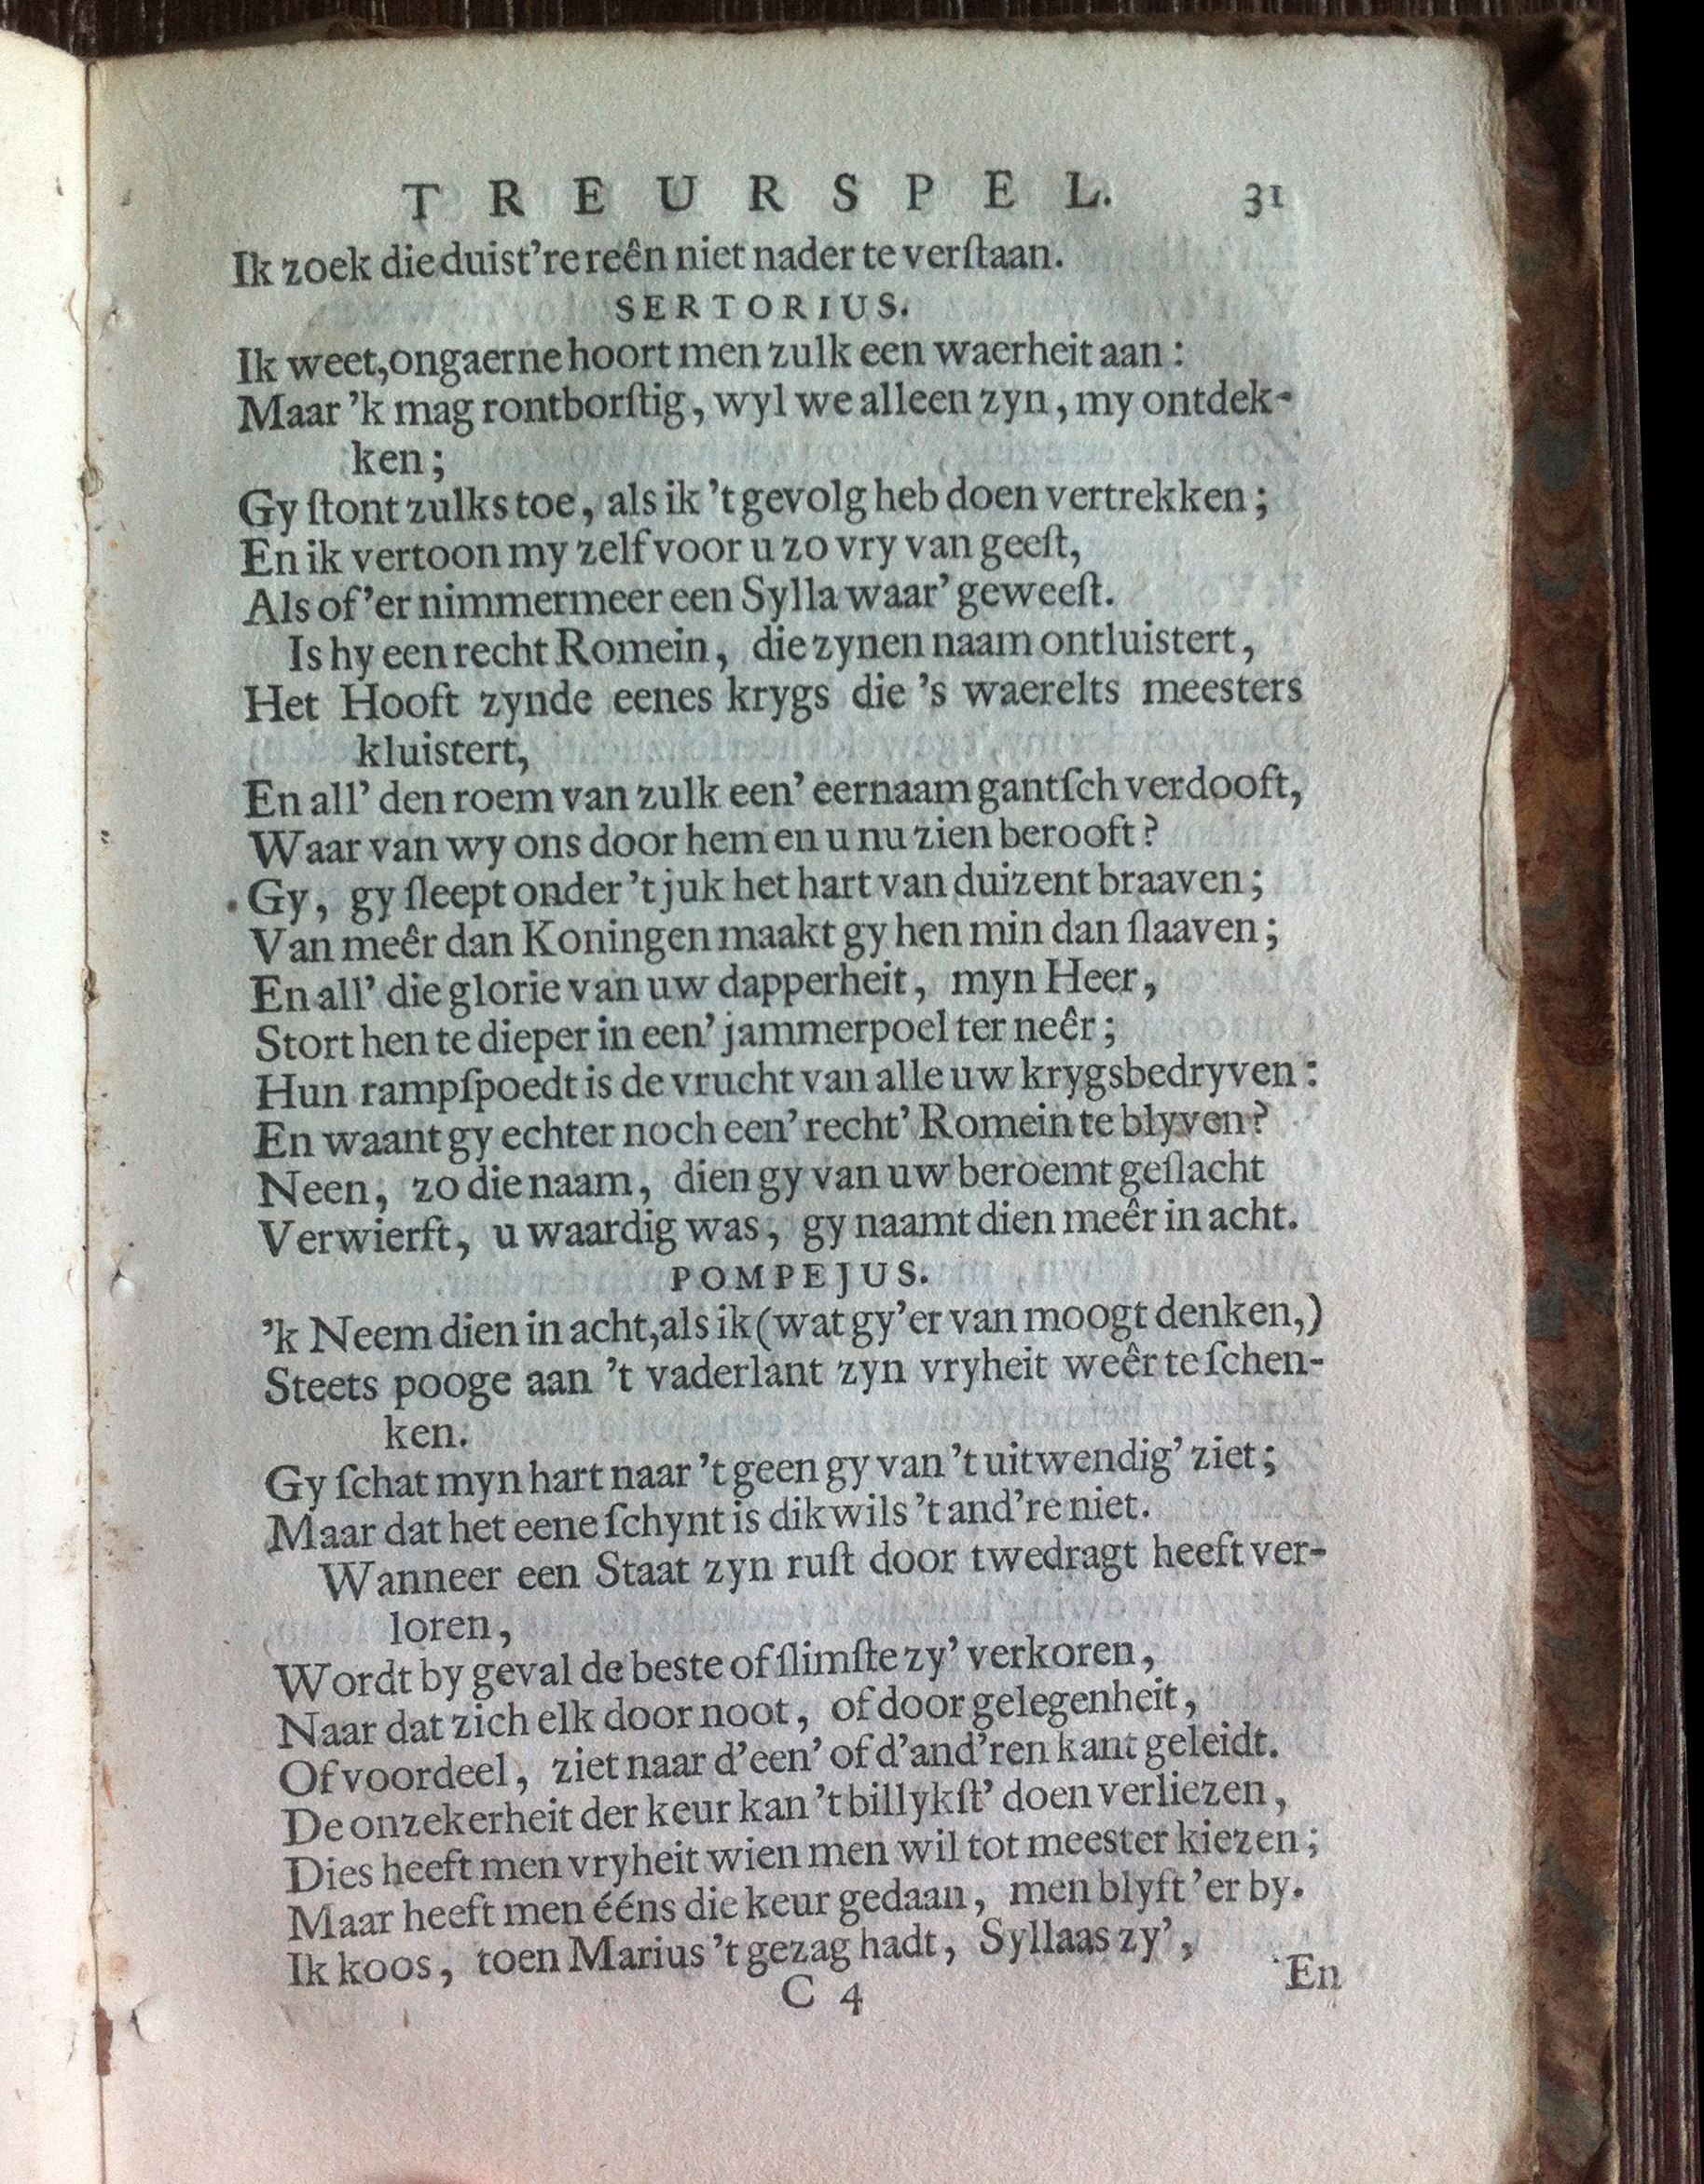 TREURSPEL. 31
Ik zoek die duist're reên niet nader te verſtaan.
SERTORIUS.
Ik weet, ongaerne hoort men zulk een waerheit aan:
Maar 'k mag rontborſtig, wyl we alleen zyn, my ontdek-
ken;
Gy ſtont zulks toe, als ik 't gevolg heb doen vertrekken;
En ik vertoon my zelf voor u zo vry van geeſt,
Als of 'er nimmermeer een Sylla waar' geweeſt.
Is hy een recht Romein, die zynen naam ontluistert,
Het Hooft zynde eenes krygs die 's waerelts meesters
kluistert,
En all' den roem van zulk een' eernaam gantſch verdooft,
Waar van wy ons door hem en u nu zien berooft?
Gy, gy ſleept onder 't juk het hart van duizent braaven;
Van meêr dan Koningen maakt gy hen min dan ſlaaven;
En all' die glorie van uw dapperheit, myn Heer,
Stort hen te dieper in een' jammerpoel ter neêr;
Hun rampſpoedt is de vrucht van alle uw krygsbedryven:
En waant gy echter noch een' recht' Romein te blyven?
Neen, zo die naam, dien gy van uw beroemt geſlacht
Verwierft, u waardig was, gy naamt dien meêr in acht.
POMPEJUS.
'k Neem dien in acht, als ik (wat gy 'er van moogt denken,)
Steets pooge aan 't vaderlant zyn vryheit weêr te ſchen-
ken.
Gy ſchat myn hart naar 't geen gy van 't uitwendig' ziet;
Maar dat het eene ſchynt is dikwils 't and're niet.
Wanneer een Staat zyn ruſt door twedragt heeft ver-
loren,
Wordt by geval de beste of ſlimſte zy' verkoren,
Naar dat zich elk door noot, of door gelegenheit,
Of voordeel, ziet naar d'een' of d'and'ren kant geleidt.
De onzekerheit der keur kan 't billykſt' doen verliezen,
Dies heeft men vryheit wien men wil tot meester kiezen;
Maar heeft men ééns die keur gedaan, men blyft 'er by.
Ik koos, toen Marius 't gezag hadt, Syllaas zy',
C 4 En